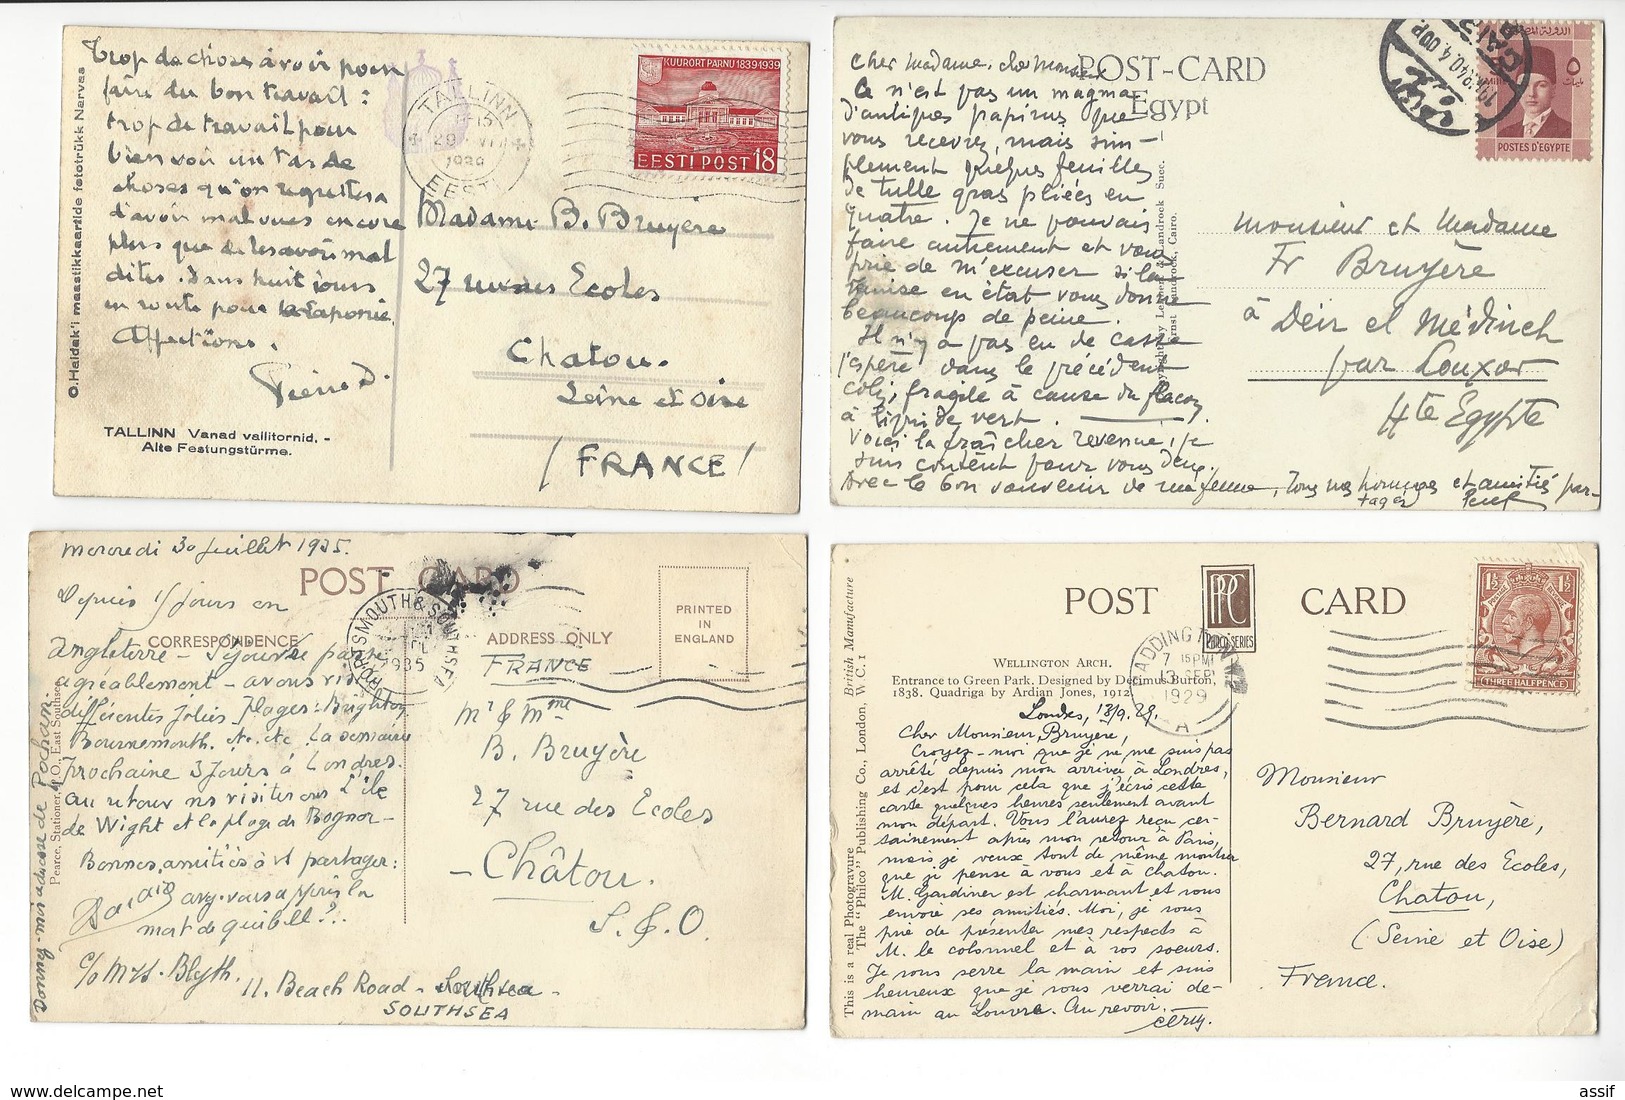 Trop de choses à voir pour
faire du bon travail :
trop de travail pour
bien voir un tas de
choses qu'on regrettera
d'avoir mal vues encore
plus que de les avoir mal
dites. Dans huit jours
en route pour la Laponie.
Affections.
Pierre D.
TALLINN Vanad vallitornid. -
Alte Festungstürme.
O. Haidak'i maastikkaartide fototrükk Narvas
TALLINN
1939
EESTI
KUURORT PÄRNU 1839 1939
EESTI POST 18
Madame B. Bruyère
27 rue des Ecoles
Chatou.
Seine et Oise
(FRANCE)
POST-CARD
Egypt
Cher Madame, cher Monsieur
Ce n'est pas un magma
d'antiques papirus que
vous recevrez, mais sim-
plement quelques feuilles
de tulle gras pliées en
quatre. Je ne pouvais
faire autrement et vous
prie de m'excuser si la
mise en état vous donne
beaucoup de peine.
Il n'y a pas eu de casse
j'espère dans le précédent
colis, fragile à cause du flacon
à liquide vert.
Voici la fraîcheur revenue ; je
suis content pour vous deux.
Avec le bon souvenir de ma femme, Tous nos hommages et amitiés par-
tagés
Landrock, Cairo.
POSTES D'EGYPTE
Monsieur et Madame
Fr Bruyère
à Deir el Médineh
par Louxor
Hte Egypte
Mercredi 30 Juillet 1935.
POST CARD
CORRESPONDENCE
ADDRESS ONLY
PRINTED
IN
ENGLAND
PORTSMOUTH & SOUTHSEA
1935
Depuis 15 jours en
Angleterre - Séjour se passe
agréablement - avons visité
différentes Jolies Plages : Brighton
Bournemouth. etc. etc. La semaine
prochaine 3 Jours à Londres.
au retour ns visiterons L'île
de Wight et la plage de Bognor -
Bonnes amitiés à vs partager :
avez-vous appris la
mort de Quibell ?..
c/o Mrs. Blyth.
11. Beach Road - Southsea -
SOUTHSEA
Donnez-moi adresse de Pochan
Pearce, Stationer, P.O., East Southsea
FRANCE
Mr & Mme
B. Bruyère
27 rue des Ecoles
- Châtou.
S. & O.
POST CARD
PPC
PHILCO SERIES
WELLINGTON ARCH.
Entrance to Green Park. Designed by Decimus Burton,
1838. Quadriga by Ardian Jones, 1912.
PADDINGTON W2
7 15 PM
13 SEP
1929
A
THREE HALFPENCE
Londres, 13/9.29.
Cher Monsieur Bruyère,
Croyez-moi que je ne me suis pas
arrêté depuis mon arrivée à Londres,
et c'est pour cela que j'écris cette
carte quelques heures seulement avant
mon départ. Vous l'aurez reçu cer-
tainement après mon retour à Paris,
mais je veux tout de même montrer
que je pense à vous et à Chatou.
M. Gardiner est charmant et vous
envoie ses amitiés. Moi, je vous
prie de présenter mes respects à
M. le colonel et à vos soeurs.
Je vous serre la main et suis
heureux que je vous verrai de-
main au Louvre. Au revoir.
Černý.
This is a real Photogravure British Manufacture
The "Philco" Publishing Co., London, W.C. 1
Monsieur
Bernard Bruyère,
27, rue des Ecoles,
Chatou,
(Seine et Oise)
France.
assif